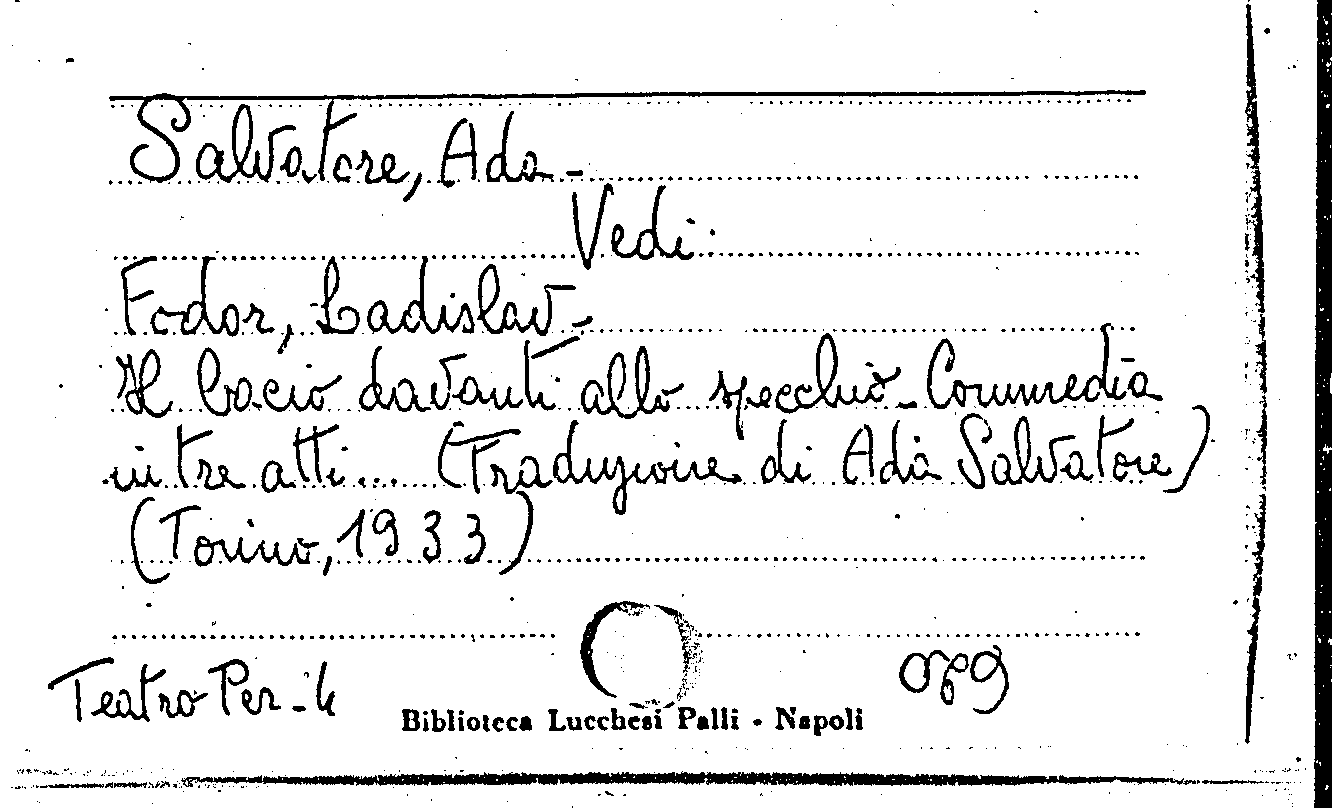 Salvatore, Ada -
Vedi:
Fodor, Ladislav -
Il bacio davanti allo specchio - Commedia
in tre atti... (Traduzione di Ada Salvatore)
(Torino, 1933)
Teatro Per - 4
Biblioteca Lucchesi Palli - Napoli